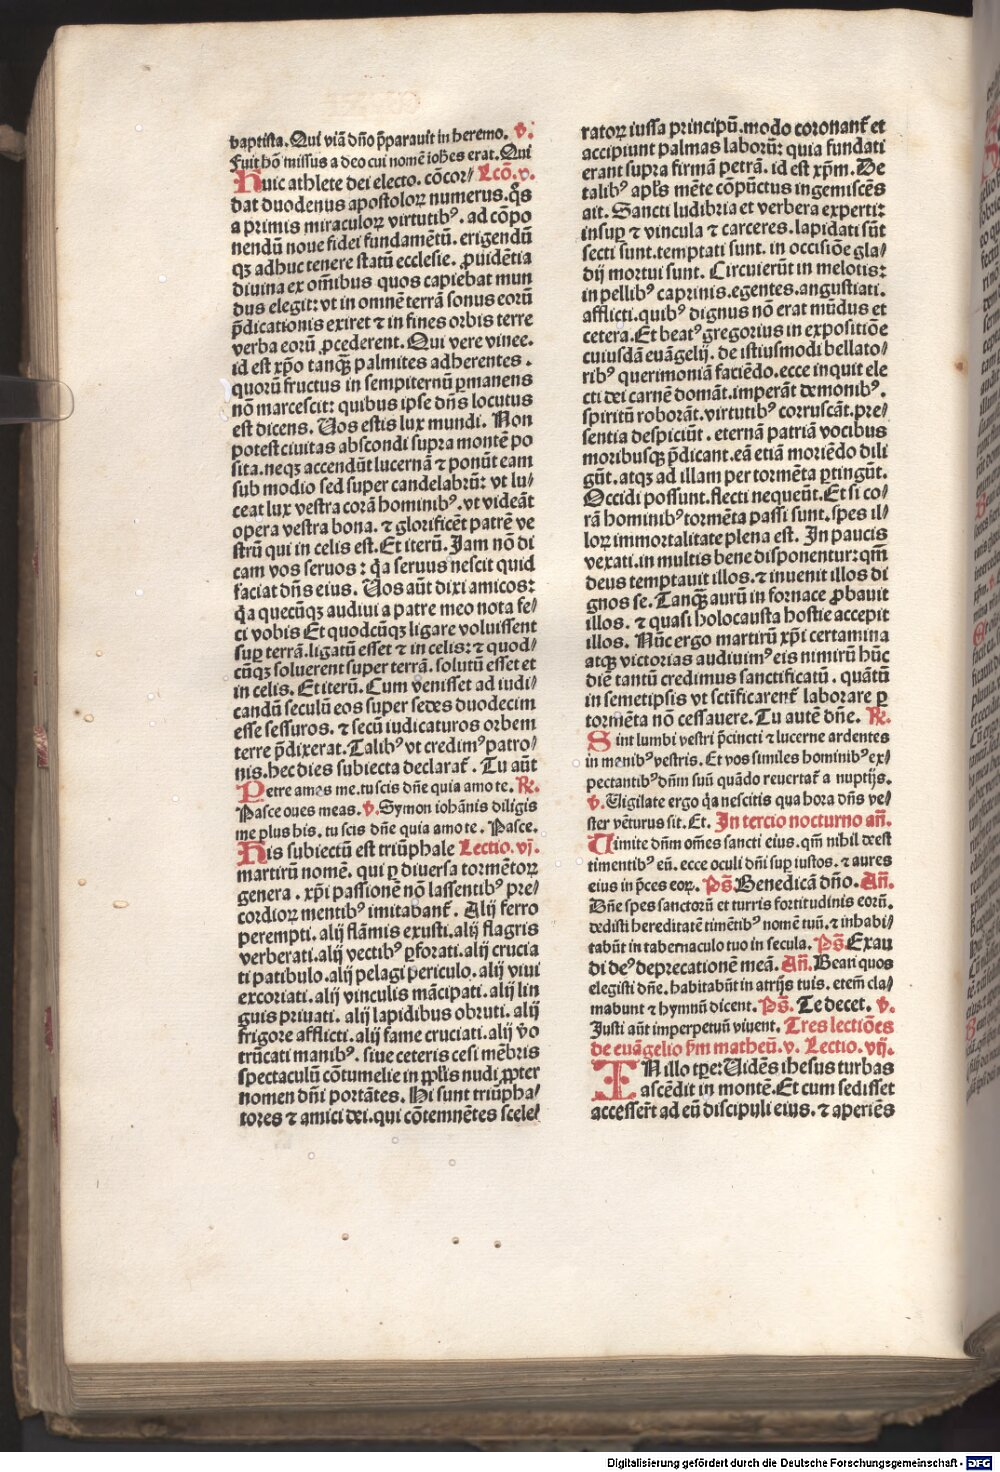 baptista. Qui viã dño p̃parauit in heremo. v̄.
Fuit hõ missus a deo cui nomẽ iohẽs erat. Qui
Huic athlete dei electo. cõcor/ Lcõ. v.
dat duodenus apostoloꝝ numerus. q̊s
a primis miraculoꝝ virtutibꝰ. ad cõpo
nendũ noue fidei fundamẽtũ. erigendũ
qꝫ adhuc tenere statũ ecclesie. ꝓuidẽtia
diuina ex om̃ibus quos capiebat mun
dus elegit: vt in omnẽ terrã sonus eorũ
p̃dicationis exiret ⁊ in fines orbis terre
verba eorũ ꝓcederent. Qui vere vinee.
id est xp̃o tanqꝫ̃ palmites adherentes.
quorũ fructus in sempiternũ ꝑmanens
nõ marcescit: quibus ipse dñs locutus
est dicens. Vos estis lux mundi. Non
potest ciuitas abscondi supra montẽ po
sita. neqꝫ accendũt lucernã ⁊ ponũt eam
sub modio sed super candelabrũ: vt lu/
ceat lux vestra corã hominibꝰ. vt videãt
opera vestra bona. ⁊ glorificẽt patrẽ ve
strũ qui in celis est. Et iterũ. Jam nõ di
cam vos seruos: q̃a seruus nescit quid
faciat dñs eius. Vos aũt dixi amicos:
q̃a quecũqꝫ audiui a patre meo nota fe/
ci vobis Et quodcũqꝫ ligare voluissent
suꝑ terrã. ligatũ esset ⁊ in celis: ⁊ quod/
cũqꝫ soluerent super terrã. solutũ esset et
in celis. Et iterũ. Cum venisset ad iudi/
candũ seculũ eos super sedes duodecim
esse sessuros. ⁊ secũ iudicaturos orbem
terre p̃dixerat. Talibꝰ vt credimꝰ patro/
nis. hec dies subiecta declarat̃. Tu aũt
Petre amas me. tu scis dñe quia amo te. ℟.
Pasce oues meas. v̄. Symon iohãnis diligis
me plus his. tu scis dñe quia amo te. Pasce.
His subiectũ est triũphale Lectio. vj.
martirũ nomẽ. qui ꝑ diuersa tormẽtoꝝ
genera. xp̃i passionẽ nõ lassentibꝰ pre/
cordioꝝ mentibꝰ imitabant̃. Alij ferro
perempti. alij flãmis exusti. alij flagris
verberati. alij vectibꝰ ꝑforati. alij crucia
ti patibulo. alij pelagi periculo. alij viui
excoriati. alij vinculis mãcipati. alij lin
guis priuati. alij lapidibus obruti. alij
frigore afflicti. alij fame cruciati. alij v̊o
trũcati manibꝰ. siue ceteris cesi mẽbris
spectaculũ cõtumelie in ꝓp̃lis nudi ꝓpter
nomen dñi portãtes. Hi sunt triũpha/
tores ⁊ amici dei. qui cõtemnẽtes scele/
ratoꝝ iussa principũ. modo coronant̃ et
accipiunt palmas laborũ: quia fundati
erant supra firmã petrã. id est xp̃m. De
talibꝰ apl̃s mẽte cõpũctus ingemiscẽs
ait. Sancti ludibria et verbera experti:
insuꝑ ⁊ vincula ⁊ carceres. lapidati sũt
secti sunt. temptati sunt. in occisiõe gla/
dij mortui sunt. Circuierũt in melotis:
in pellibꝰ caprinis. egentes. angustiati.
afflicti. quibꝰ dignus nõ erat mũdus et
cetera. Et beatꝰ gregorius in expositiõe
cuiusdã euãgelij. de istiusmodi bellato/
ribꝰ querimoniã faciẽdo. ecce inquit ele
cti dei carnẽ domãt. imperãt demonibꝰ.
spiritũ roborãt. virtutibꝰ corruscãt. pre/
sentia despiciũt. eternã patriã vocibus
moribusqꝫ p̃dicant. eã etiã moriẽdo dili
gũt. atqꝫ ad illam per tormẽta ꝑtingũt.
Occidi possunt. flecti nequeũt. Et si co/
rã hominibꝰ tormẽta passi sunt. spes il/
loꝝ immortalitate plena est. In paucis
vexati. in multis bene disponentur: qm̃
deus temptauit illos. ⁊ inuenit illos di
gnos se. Tanqꝫ̃ aurũ in fornace ꝓbauit
illos. ⁊ quasi holocausta hostie accepit
illos. Nũc ergo martirũ xp̃i certamina
atqꝫ victorias audiuimꝰ eis nimirũ hũc
diẽ tantũ credimus sanctificatũ. quãtũ
in semetipsis vt sctĩficarent̃ laborare ꝑ
tormẽta nõ cessauere. Tu autẽ dñe. ℟.
Sint lumbi vestri p̃cincti ⁊ lucerne ardentes
in manibꝰ vestris. Et vos similes hominibꝰ ex/
pectantibꝰ dñm suũ quãdo reuertat̃ a nuptijs.
v̄. Vigilate ergo q̃a nescitis qua hora dñs ve/
ster vẽturus sit. Et. In tercio nocturno añ.
Timite dñm om̃es sancti eius. qm̃ nihil deest
timentibꝰ eũ. ecce oculi dñi suꝑ iustos. ⁊ aures
eius in p̃ces eoꝝ. Pš. Benedicã dño. Añ.
Dñe spes sanctorũ et turris fortitudinis eorũ.
dedisti hereditatẽ timẽtibꝰ nomẽ tuũ. ⁊ inhabi/
tabũt in tabernaculo tuo in secula. Pš. Exau
di deꝰ deprecationẽ meã. Añ. Beati quos
elegisti dñe. habitabũt in atrijs tuis. etem̃ cla/
mabunt ⁊ hymnũ dicent. Pš. Te decet. v̄.
Justi aũt imperpetuũ viuent. Tres lectiões
de euãgelio ẜm matheũ. v. Lectio. vij.
IN illo tꝑe: Vidẽs ihesus turbas
ascẽdit in montẽ. Et cum sedisset
accesser̃t ad eũ discipuli eius. ⁊ aperiẽs
Digitalisierung gefördert durch die Deutsche Forschungsgemeinschaft - DFG